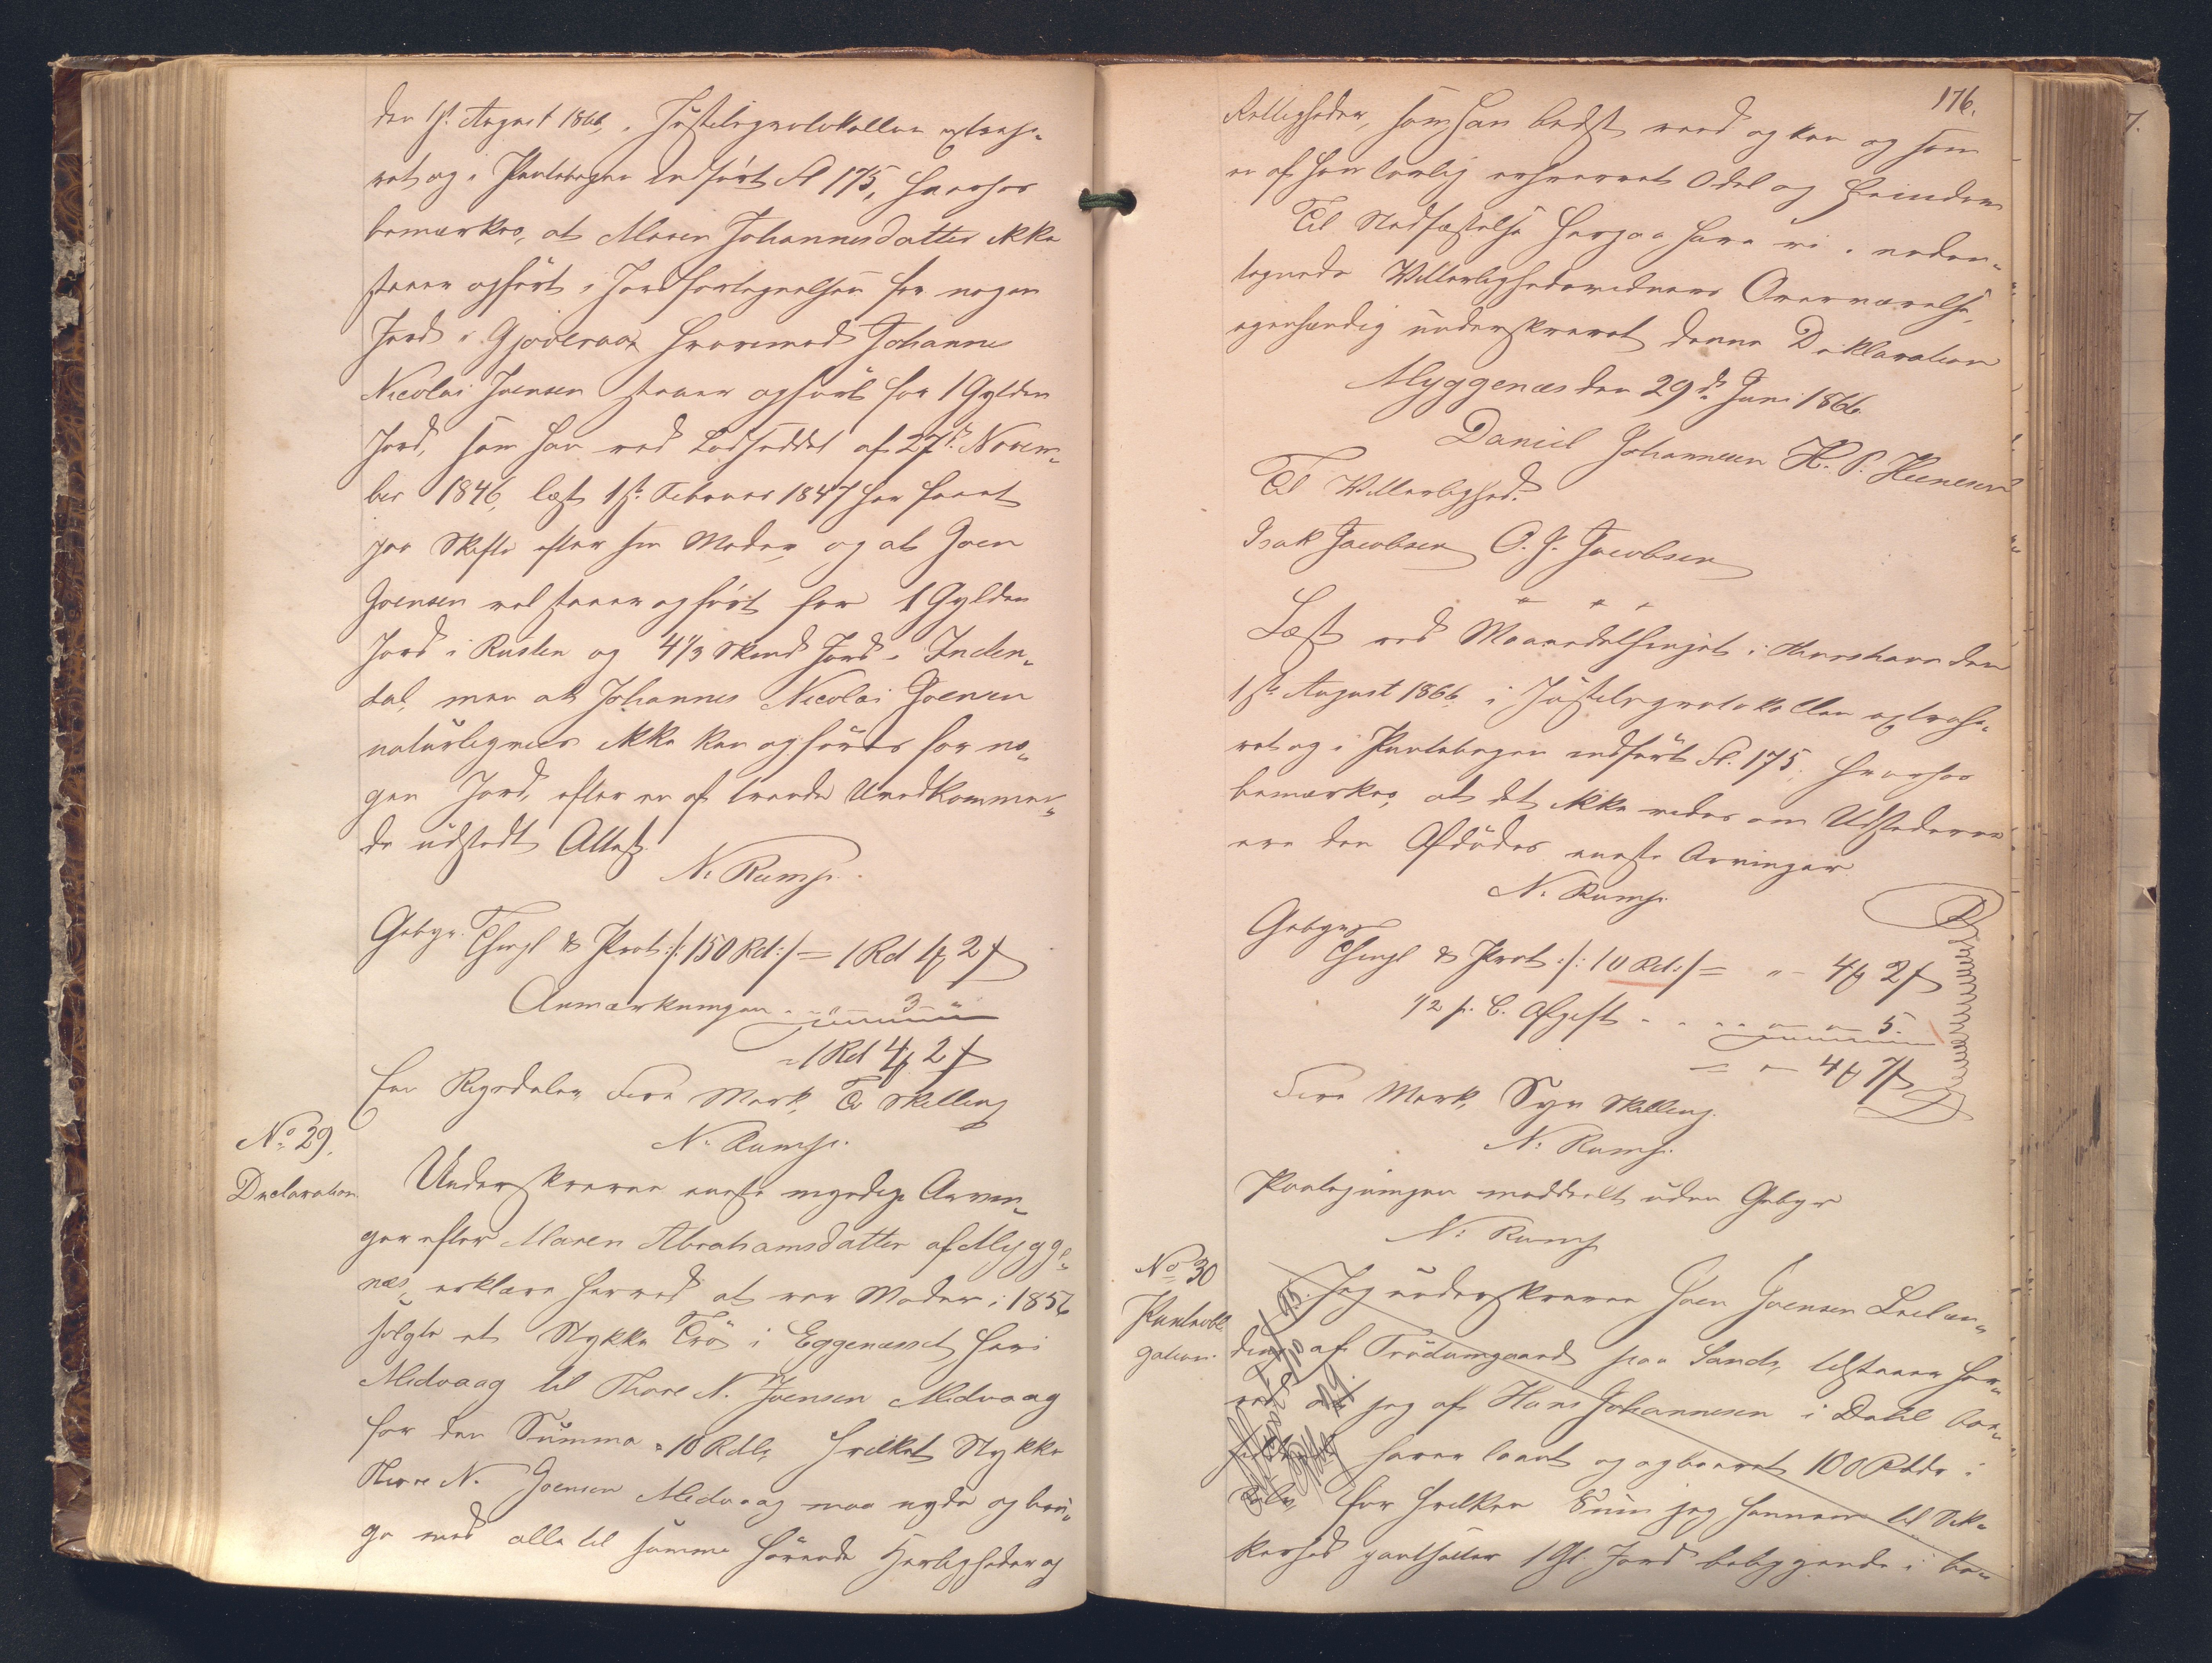 den 1st. August 1866, i Justitsprotokollen extrahe-
ret og i Pantebogen indført Fl 175, hvorhos
bemærkes, at Maren Johannesdatter ikke
staaer opført i Jordfortegnelsen for nogen
Jord i Gjoveraae hvorimod Johannes
Nicolai Joensen staaer opført for 1 Gylden
Jord, som han ved Lodseddel af 27de Novem-
ber 1846, læst 1ste Februar 1847 har faaet
paa Skifte efter sin Moder, og at Joen
Joensen vel staaer opført for 1 Gylden
Jord i Rusten og 4 1/3 Skind Jord i Inden-
dal, men at Johannes Nicolai Joensen
naturligviis ikke kan opføres for no-
gen Jord, efter en af trende Uvedkommen-
de udstedt Attest.
N. Rump.
Gebyr. Thingl & Prot: /: 150 Rd: / = 1 Rd 1 ℔ 2 ß
Anmærkningen - " - 3 - "
= 1 Rd 4 ℔ 2 ß
En Rigsdaler, Fire Mark, To Skilling
N. Rump.
No 29.
Declaration.
Underskrevne eneste myndige Arvin-
ger efter Maren Abrahamsdatter af Mygge-
næs, erklære herved at vor Moder i 1856
solgte et Stykke Trö i Eggenæsset her i
Midvaag til Thore N. Joensen Midvaag
for den Summa = 10 Rdlr, hvilket Stykke
Thore N. Joensen Midvaag maa nyde og bru-
ge med alle til samme hörende Herligheder og
176.
Rettigheder, som han bedst veed og kan og som
en af ham lovlig erhvervet Odel og Eiendom
Til Stadfæstelse herpaa have vi i neden-
tegnede Vitterlighedsvidners Overværelse,
egenhændig underskrevet denne Deklaration
Myggenæs den 29de Juni 1866.
Daniel Johannesen H. P.
Til Vitterlighed.
Isak Jacobsen O. J. Jacobsen
Læst ved Maanedsthinget i Thorshavn den
1ste August 1866 i Justitsprotokollen extrahe-
ret og i Pantebogen indført Fl. 175, hvorhos
bemærkes, at det ikke vides om Udstederne
ere den Afdødes eneste Arvinger
N. Rump.
Gebyr
Thingl & Prot: /: 10 Rd: / = " - 4 ℔ 2 ß
1/2 p. C. Afgift - - - - - 5.
= " - 4 ℔ 7 ß
Fire Mark, Syv Skilling.
N. Rump.
Paategningen meddeelt uden Gebyr
N. Rump
No 30
Panteobli-
gation.
Jeg underskrevne Joen Joensen Leilæn-
ding af Trödumgaard paa Sand, tilstaaer her-
ved at jeg af Hans Johannesen i Dahl
haver laant og opbaaret 100 Rbdr i
for hvilken Sum jeg hannem til Sik-
kerhed pantsætter 1 Gl. Jord beliggende i be-